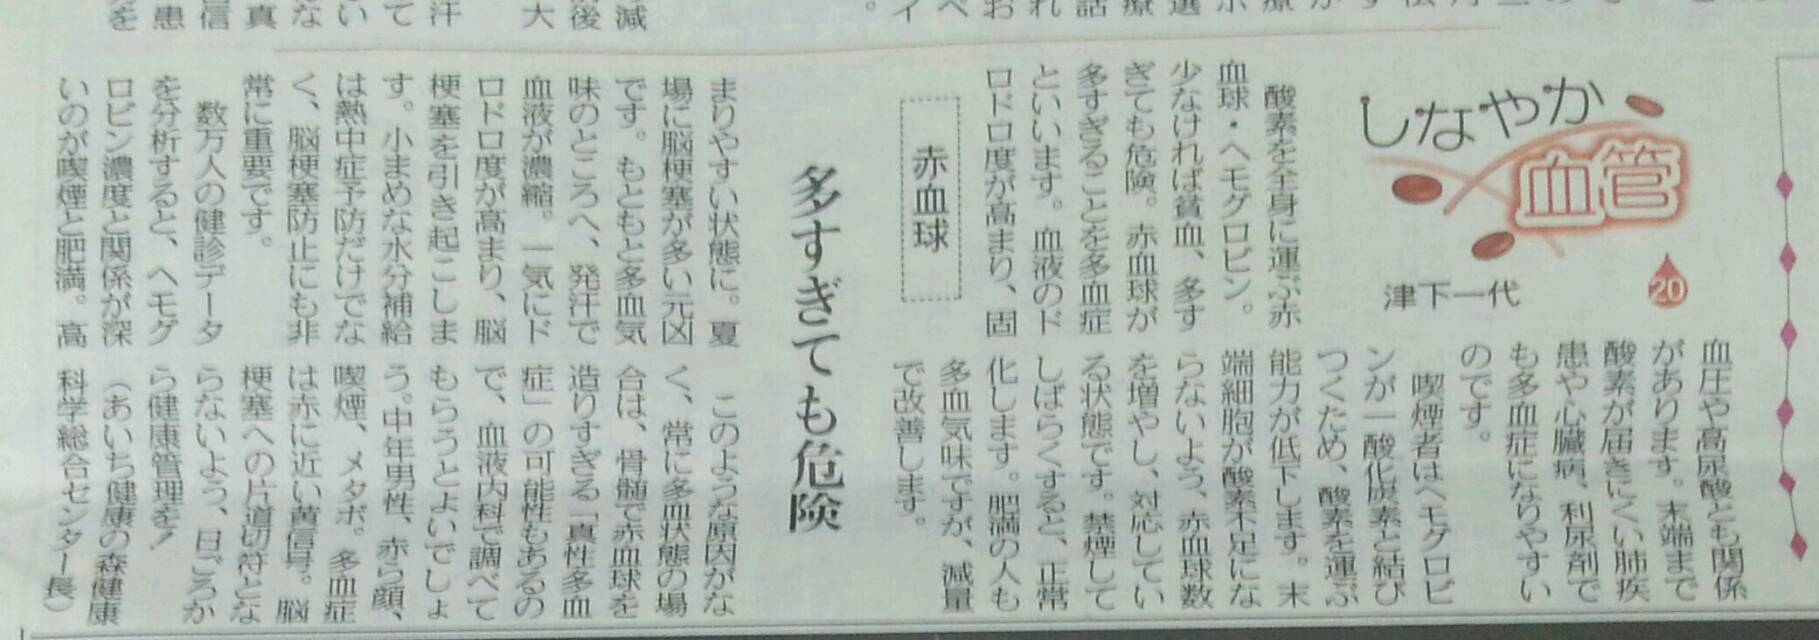 しなやか
血管
20
津下一代
赤血球
多すぎても危険
酸素を全身に運ぶ赤
血球・ヘモグロビン。
少なければ貧血、多す
ぎても危険。赤血球が
多すぎることを多血症
といいます。血液のド
ロドロ度が高まり、固
まりやすい状態に。夏
場に脳梗塞が多い元凶
です。もともと多血気
味のところへ、発汗で
血液が濃縮。一気にド
ロドロ度が高まり、脳
梗塞を引き起こしま
す。小まめな水分補給
は熱中症予防だけでな
く、脳梗塞防止にも非
常に重要です。
数万人の健診データ
を分析すると、ヘモグ
ロビン濃度と関係が深
いのが喫煙と肥満。高
血圧や高尿酸とも関係
があります。末端まで
酸素が届きにくい肺疾
患や心臓病、利尿剤で
も多血症になりやすい
のです。
喫煙者はヘモグロビ
ンが一酸化炭素と結び
つくため、酸素を運ぶ
能力が低下します。末
端細胞が酸素不足にな
らないよう、赤血球数
を増やし、対応してい
る状態です。禁煙して
しばらくすると、正常
化します。肥満の人も
多血気味ですが、減量
で改善します。
このような原因がな
く、常に多血状態の場
合は、骨髄で赤血球を
造りすぎる「真性多血
症」の可能性もあるの
で、血液内科で調べて
もらうとよいでしょ
う。中年男性、赤ら顔、
喫煙、メタボ。多血症
は赤に近い黄信号。脳
梗塞への片道切符とな
らないよう、日ごろか
ら健康管理を！
（あいち健康の森健康
科学総合センター長）